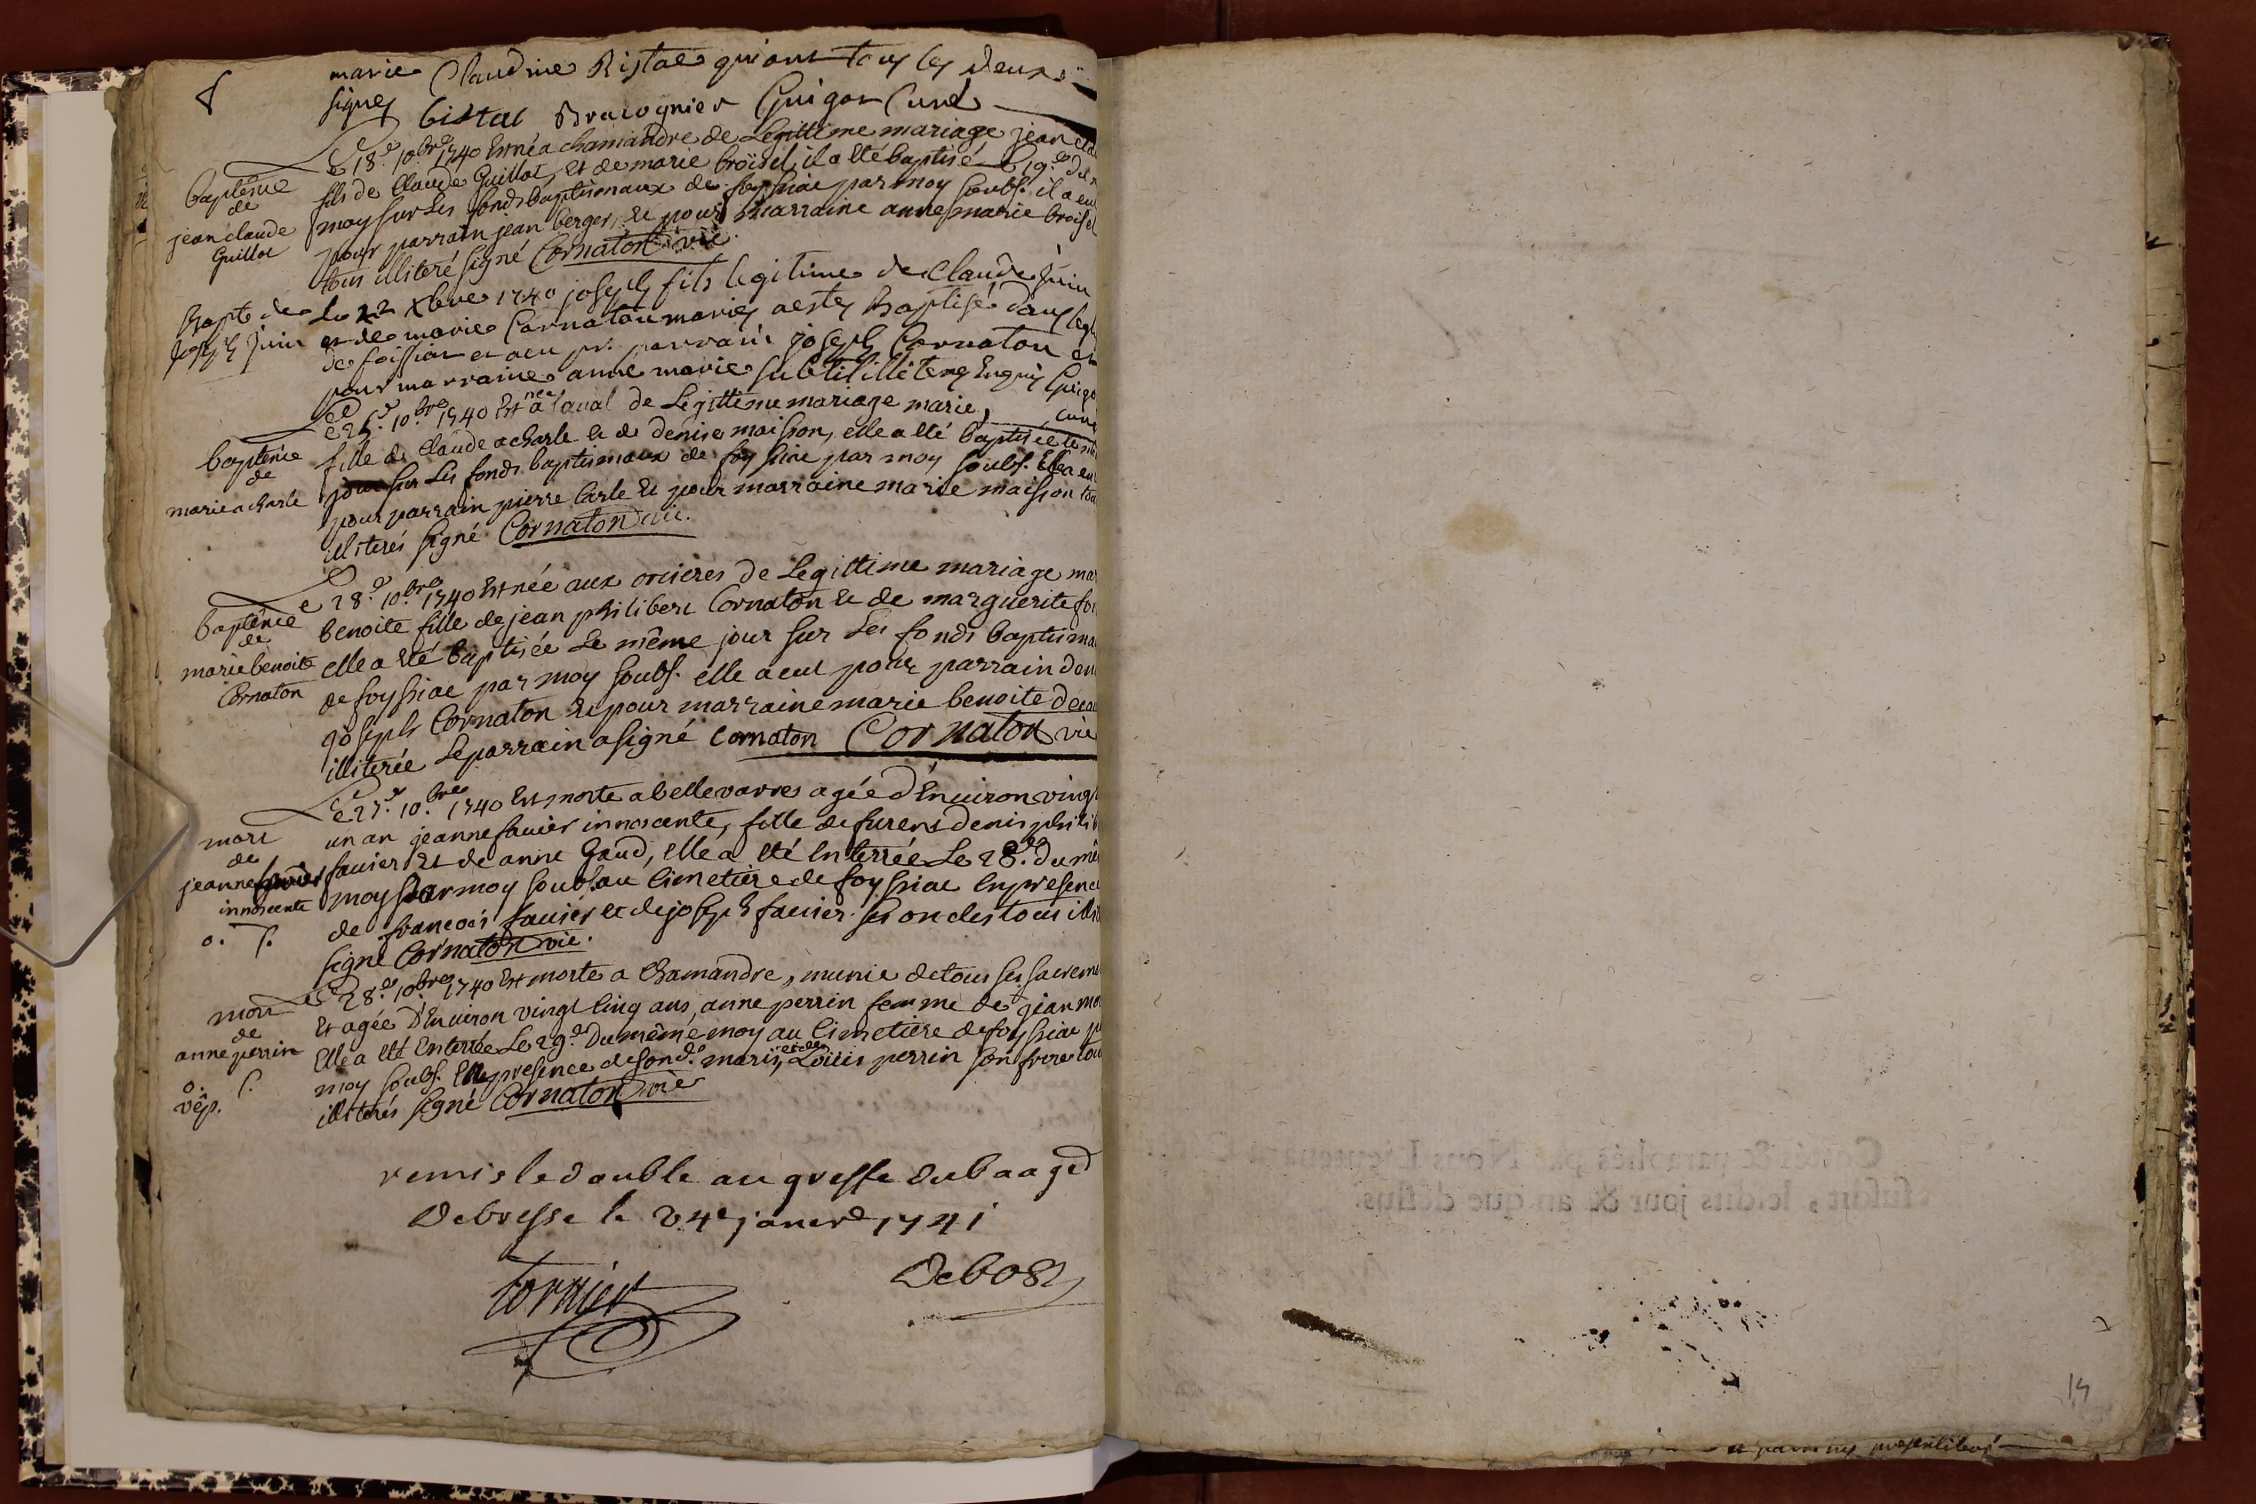 marie Claudine Bistac qui ont tous les deux
signez Bistac Bracognier Guigot Curé
Le 18.e 10.bre 1740 Est né a chamandre de Legittime mariage jean cla
baptême de jean claude Guillot
fils de Claude Guillot, et de marie broisel, il a été baptisé le 19.e du
moy sur Les fonds baptismaux de foyssiac par moy soubs. il a eu
pour parrain jean berger, et pour marraine anne marie broisel
tous illiteré signé Cornaton vic.
Bapt. de Joseph Juin
Le 22 Xbre 1740 joseph fils legitime de claude Juin
et de marie Cornaton mariez a estez Baptisé dans legl
de foissiat et a eu pr. parrain joseph Cornaton et
pour marraine anne marie subtil illiterez Enquis Guigo
curé
Le 25.e 10.bre 1740 Est née a laval de Legittime mariage marie,
baptême de marie acharle
fille de Claude acharle et de denise maisson, elle a été baptisée le m
jour sur Les fonds baptismaux de foyssiac par moy soubs. Elle a eu
pour parrain pierre Carle et pour marraine marie maisson tou
illiterés signé Cornaton vic.
Le 28.e 10.bre 1740 Est née aux orcieres de Legittime mariage mar
baptême de marie benoite Cornaton
benoite fille de jean philibert Cornaton et de marguerite fo
elle a été baptisée Le même jour sur Les fonds baptisma
de foyssiac par moy soubs. elle a eut pour parrain den
joseph Cornaton et pour marraine marie benoite
illiterée Le parrain a signé Cornaton Cornaton vic
Le 27.e 10.bre 1740 Est morte a bellevavres agée d'Environ vingt
mort de jeanne favier innocente
o. s.
un an jeanne favier innocente, fille de furent denis phili
favier Et de anne Gaud, Elle a été Enterrée Le 28.e du mê
moy par moy soubs. au Cimetiere de foyssiac En presence
de francois favier et de joseph favier ses oncles tous illi
signé Cornaton vic.
Le 28.e 10.bre 1740 Est morte a Chamandre, munie de tous ses sacreme
mort de anne perrin
o. s.
vêp.
Et agée d'Environ vingt Cinq ans, anne perrin femme de jean mo
Elle a été Enterrée Le 29.e Du même moy au Cimetiere de foyssiac p
moy soubs. En presence de son d. mari, et de Louis perrin son frere tou
illiterés signé Cornaton vic
remis le double au greffe du baage
de bresse le 24e janvr 1741
Debost
15
Cottés & paraphés par Nous Lieutenant
susdit, lesdits jour & an que dessus.